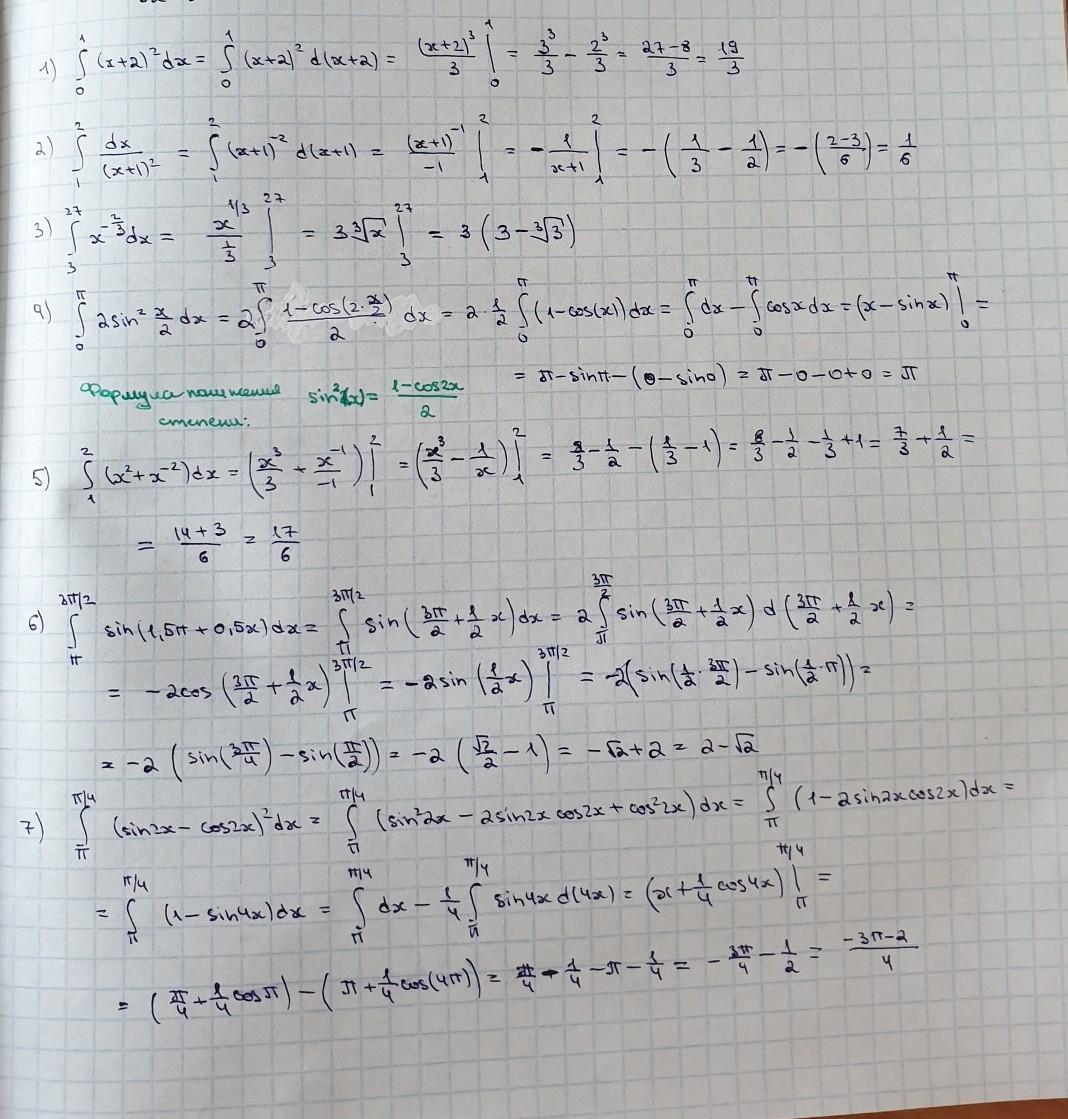 1) ∫₀¹ (x+2)² dx = ∫₀¹ (x+2)² d(x+2) = (x+2)³/3 |₀¹ = 3³/3 − 2³/3 = (27−8)/3 = 19/3
2) ∫₁² dx/(x+1)² = ∫₁² (x+1)⁻² d(x+1) = (x+1)⁻¹/−1 |₁² = − 1/(x+1) |₁² = −(1/3 − 1/2) = −((2−3)/6) = 1/6
3) ∫₃²⁷ x^(−2/3) dx = x^(1/3)/(1/3) |₃²⁷ = 3∛x |₃²⁷ = 3(3−∛3)
4) ∫₀^π 2sin² x/2 dx = 2∫₀^π (1−cos(2·x/2))/2 dx = 2·1/2 ∫₀^π (1−cos(x)) dx = ∫₀^π dx − ∫₀^π cosx dx = (x−sinx) |₀^π =
= π−sinπ−(0−sin0) = π−0−0+0 = π
Формула понижения sin²(x) = (1−cos2x)/2
степени:
5) ∫₁² (x²+x⁻²) dx = (x³/3 + x⁻¹/−1) |₁² = (x³/3 − 1/x) |₁² = 8/3 − 1/2 − (1/3 − 1) = 8/3 − 1/2 − 1/3 + 1 = 7/3 + 1/2 =
= (14+3)/6 = 17/6
6) ∫_π^(3π/2) sin(1,5π + 0,5x) dx = ∫_π^(3π/2) sin(3π/2 + 1/2 x) dx = 2∫_π^(3π/2) sin(3π/2 + 1/2 x) d(3π/2 + 1/2 x) =
= −2cos(3π/2 + 1/2 x) |_π^(3π/2) = −2sin(1/2 x) |_π^(3π/2) = −2(sin(1/2 · 3π/2) − sin(1/2 · π)) =
= −2 (sin(3π/4) − sin(π/2)) = −2 (√2/2 − 1) = −√2 + 2 = 2−√2
7) ∫_π^(π/4) (sin2x − cos2x)² dx = ∫_π^(π/4) (sin²2x − 2sin2x cos2x + cos²2x) dx = ∫_π^(π/4) (1−2sin2xcos2x) dx =
= ∫_π^(π/4) (1−sin4x) dx = ∫_π^(π/4) dx − 1/4 ∫_π^(π/4) sin4x d(4x) = (x + 1/4 cos4x) |_π^(π/4) =
= (π/4 + 1/4 cosπ) − (π + 1/4 cos(4π)) = π/4 − 1/4 − π − 1/4 = − 3π/4 − 1/2 = (−3π−2)/4